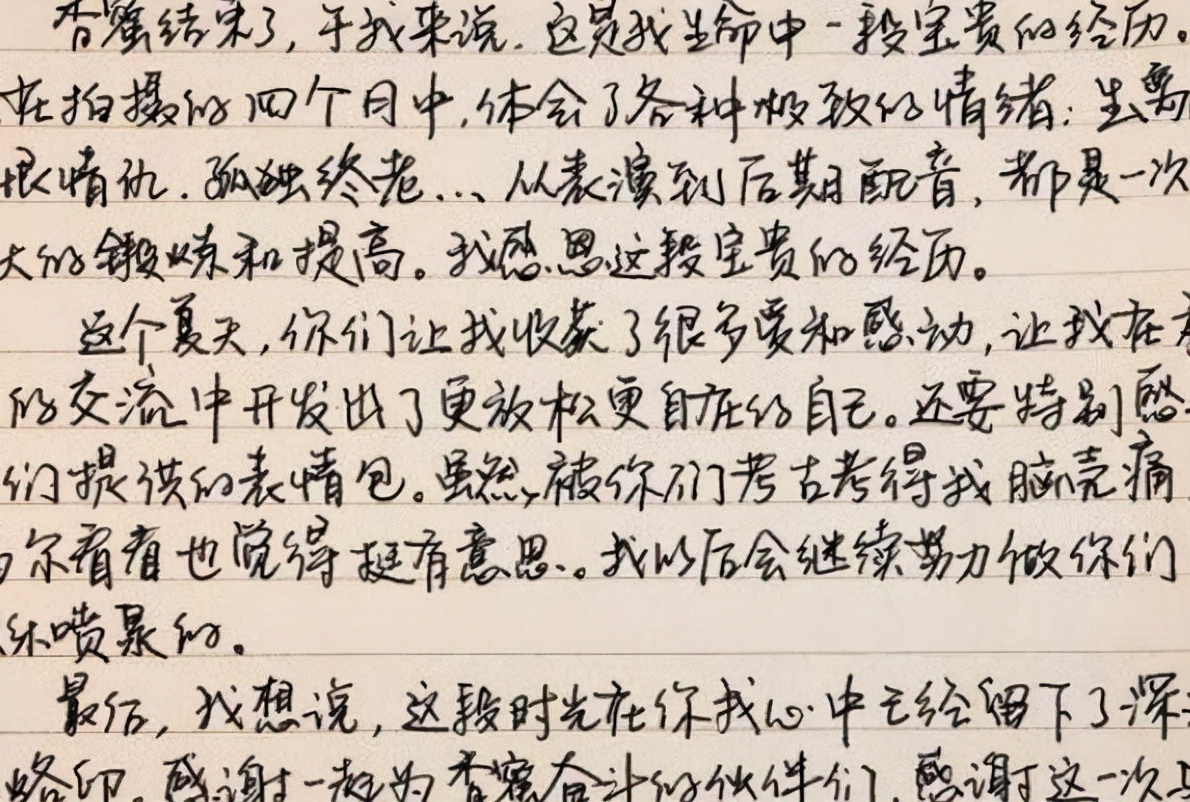 香蜜结束了，于我来说，这是我生命中一段宝贵的经历。
在拍摄的四个月中，体会了各种极致的情绪：生离
恨情仇、孤独终老...、从表演到后期配音，都是一次
大的锻炼和提高。我感恩这段宝贵的经历。
这个夏天，你们让我收获了很多爱和感动，让我在
的交流中开发出了更放松更自在的自己。还要特别感
们提供的表情包。虽然被你们考古考得我脑壳痛
尔看看也觉得挺有意思。我以后会继续努力做你们
喷泉的。
最后，我想说，这段时光在你我心中已经留下了深
烙印。感谢一起为香蜜奋斗的伙伴们，感谢这一次